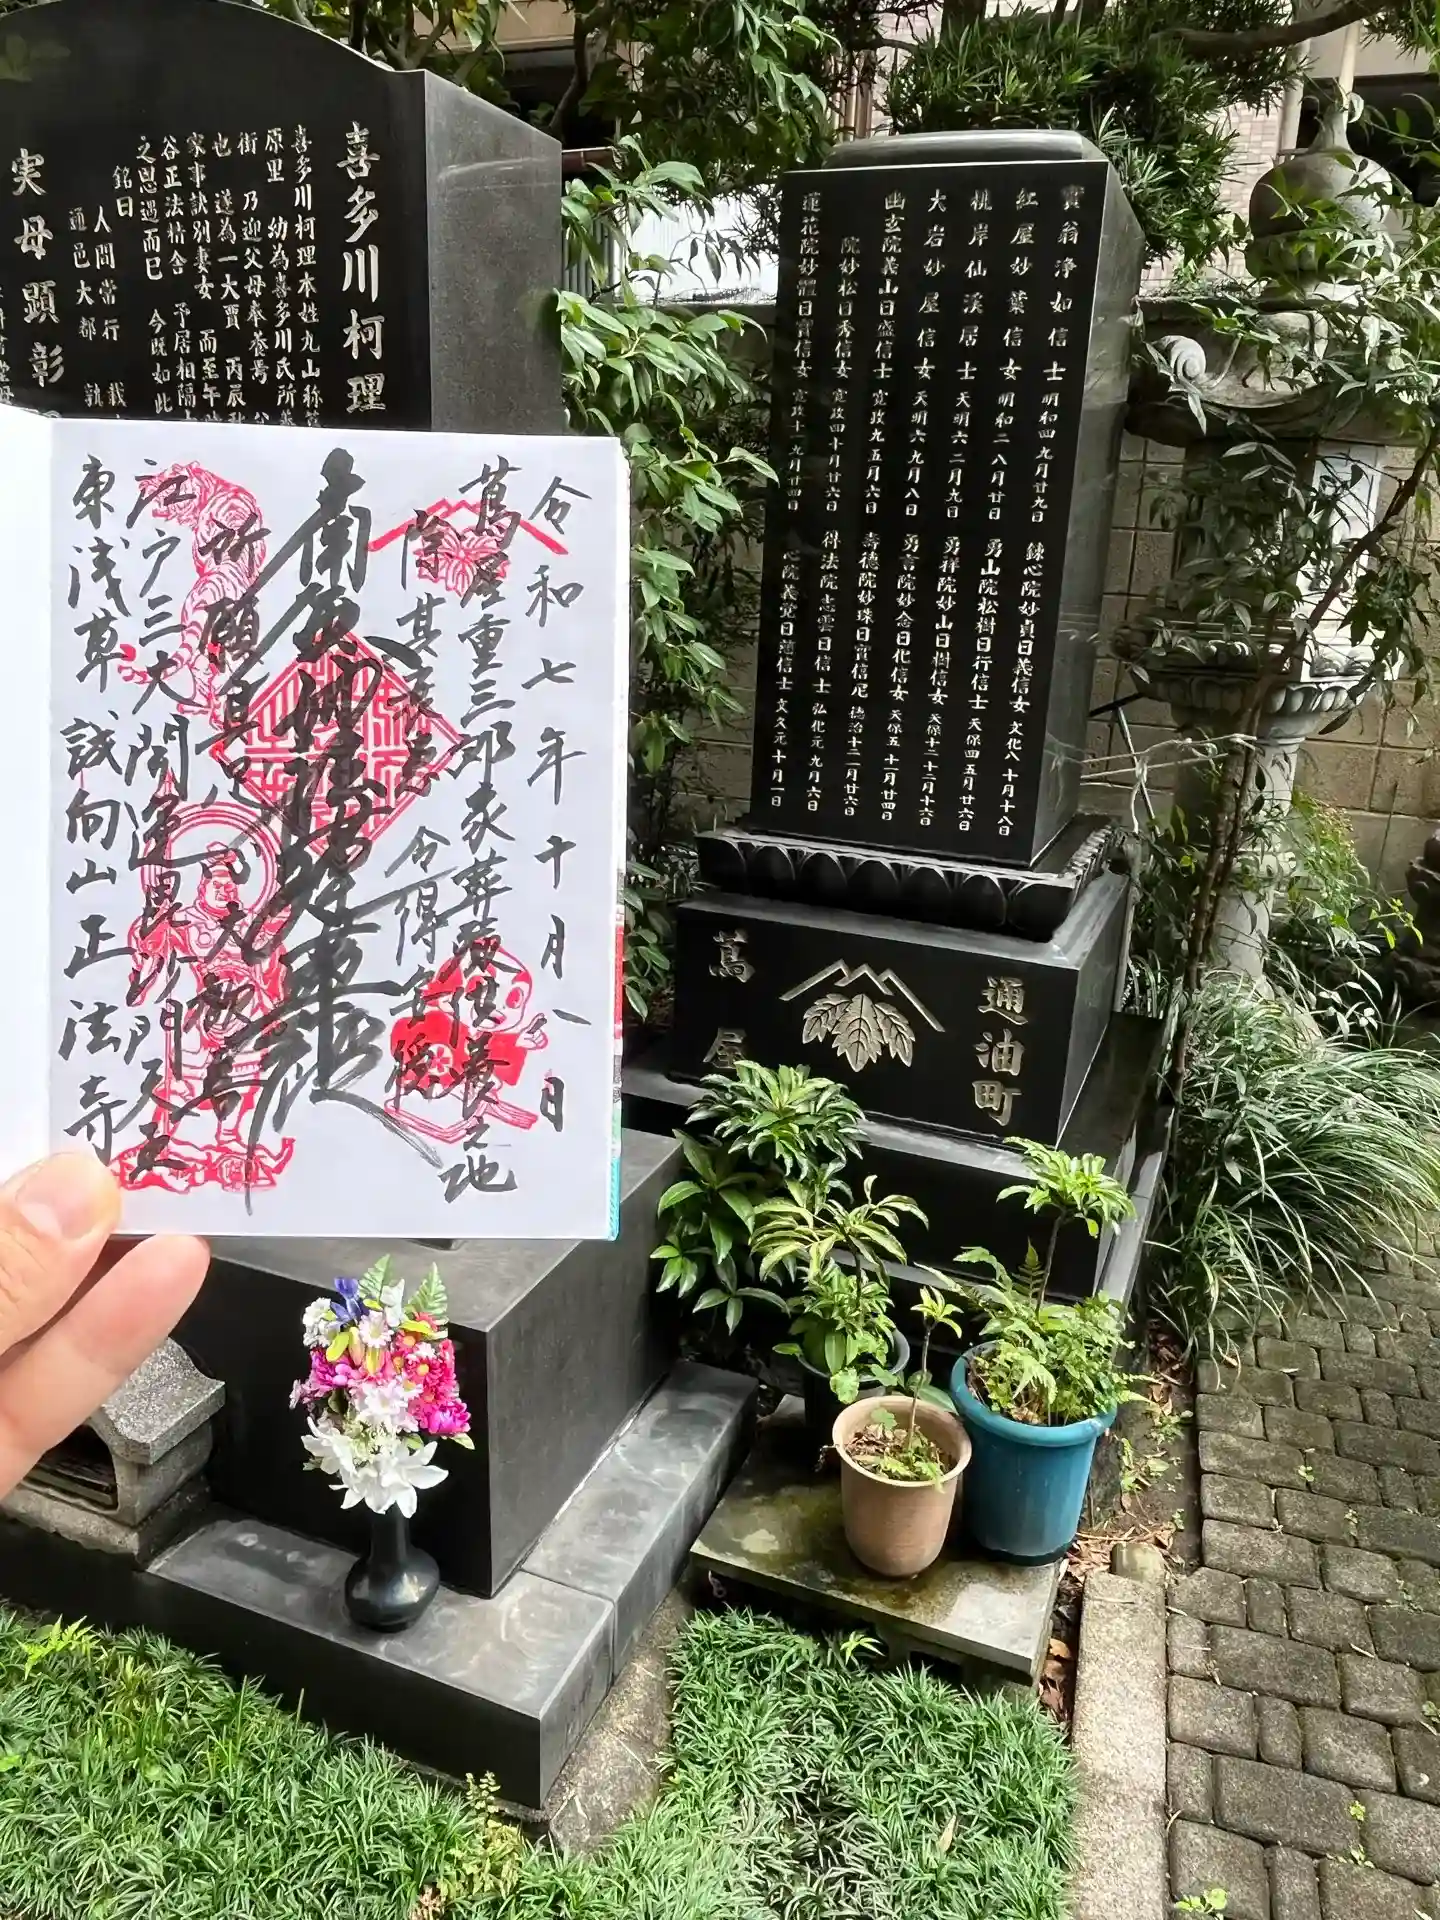 喜多川柯理
喜多川柯理本姓丸山称蔦
原里 幼為喜多川氏所養
街 乃迎父母奉養焉
也 遂為一大賈 丙辰秋
家事訣別妻女 而至午時
谷正法精舎 予居相隔
之恩遇而已 今既如此
銘曰
人間常行 載
通邑大都 孰
実母顕彰
令和七年十月八日
蔦屋重三郎家葬及供養之地
除其衰患 令得安穏
南無妙法蓮華経
所願具足 心大歓喜
江戸三大開運毘沙門天王
東浅草 誠向山正法寺
寶翁浄如信士 明和四九月廿九日 錬心院妙貞日義信女 文化八十月十八日
紅屋妙葉信女 明和二八月廿日 勇山院松樹日行信士 天保四五月廿六日
桃岸仙溪居士 天明六二月九日 勇祥院妙山日樹信女 天保十二十二月十六日
大岩妙屋信女 天明六九月八日 勇誉院妙念日化信女 天保五十一月廿四日
幽玄院義山日盛信士 寛政九五月六日 壽德院妙珠日實信尼 徳治十二一月廿六日
院妙松日秀信女 寛政四十月廿六日 得法院忠雲日信士 弘化元九月六日
蓮花院妙體日實信女 寛政十一九月廿四日 心院義覚日薀信士 文久元十月一日
通油町
蔦屋